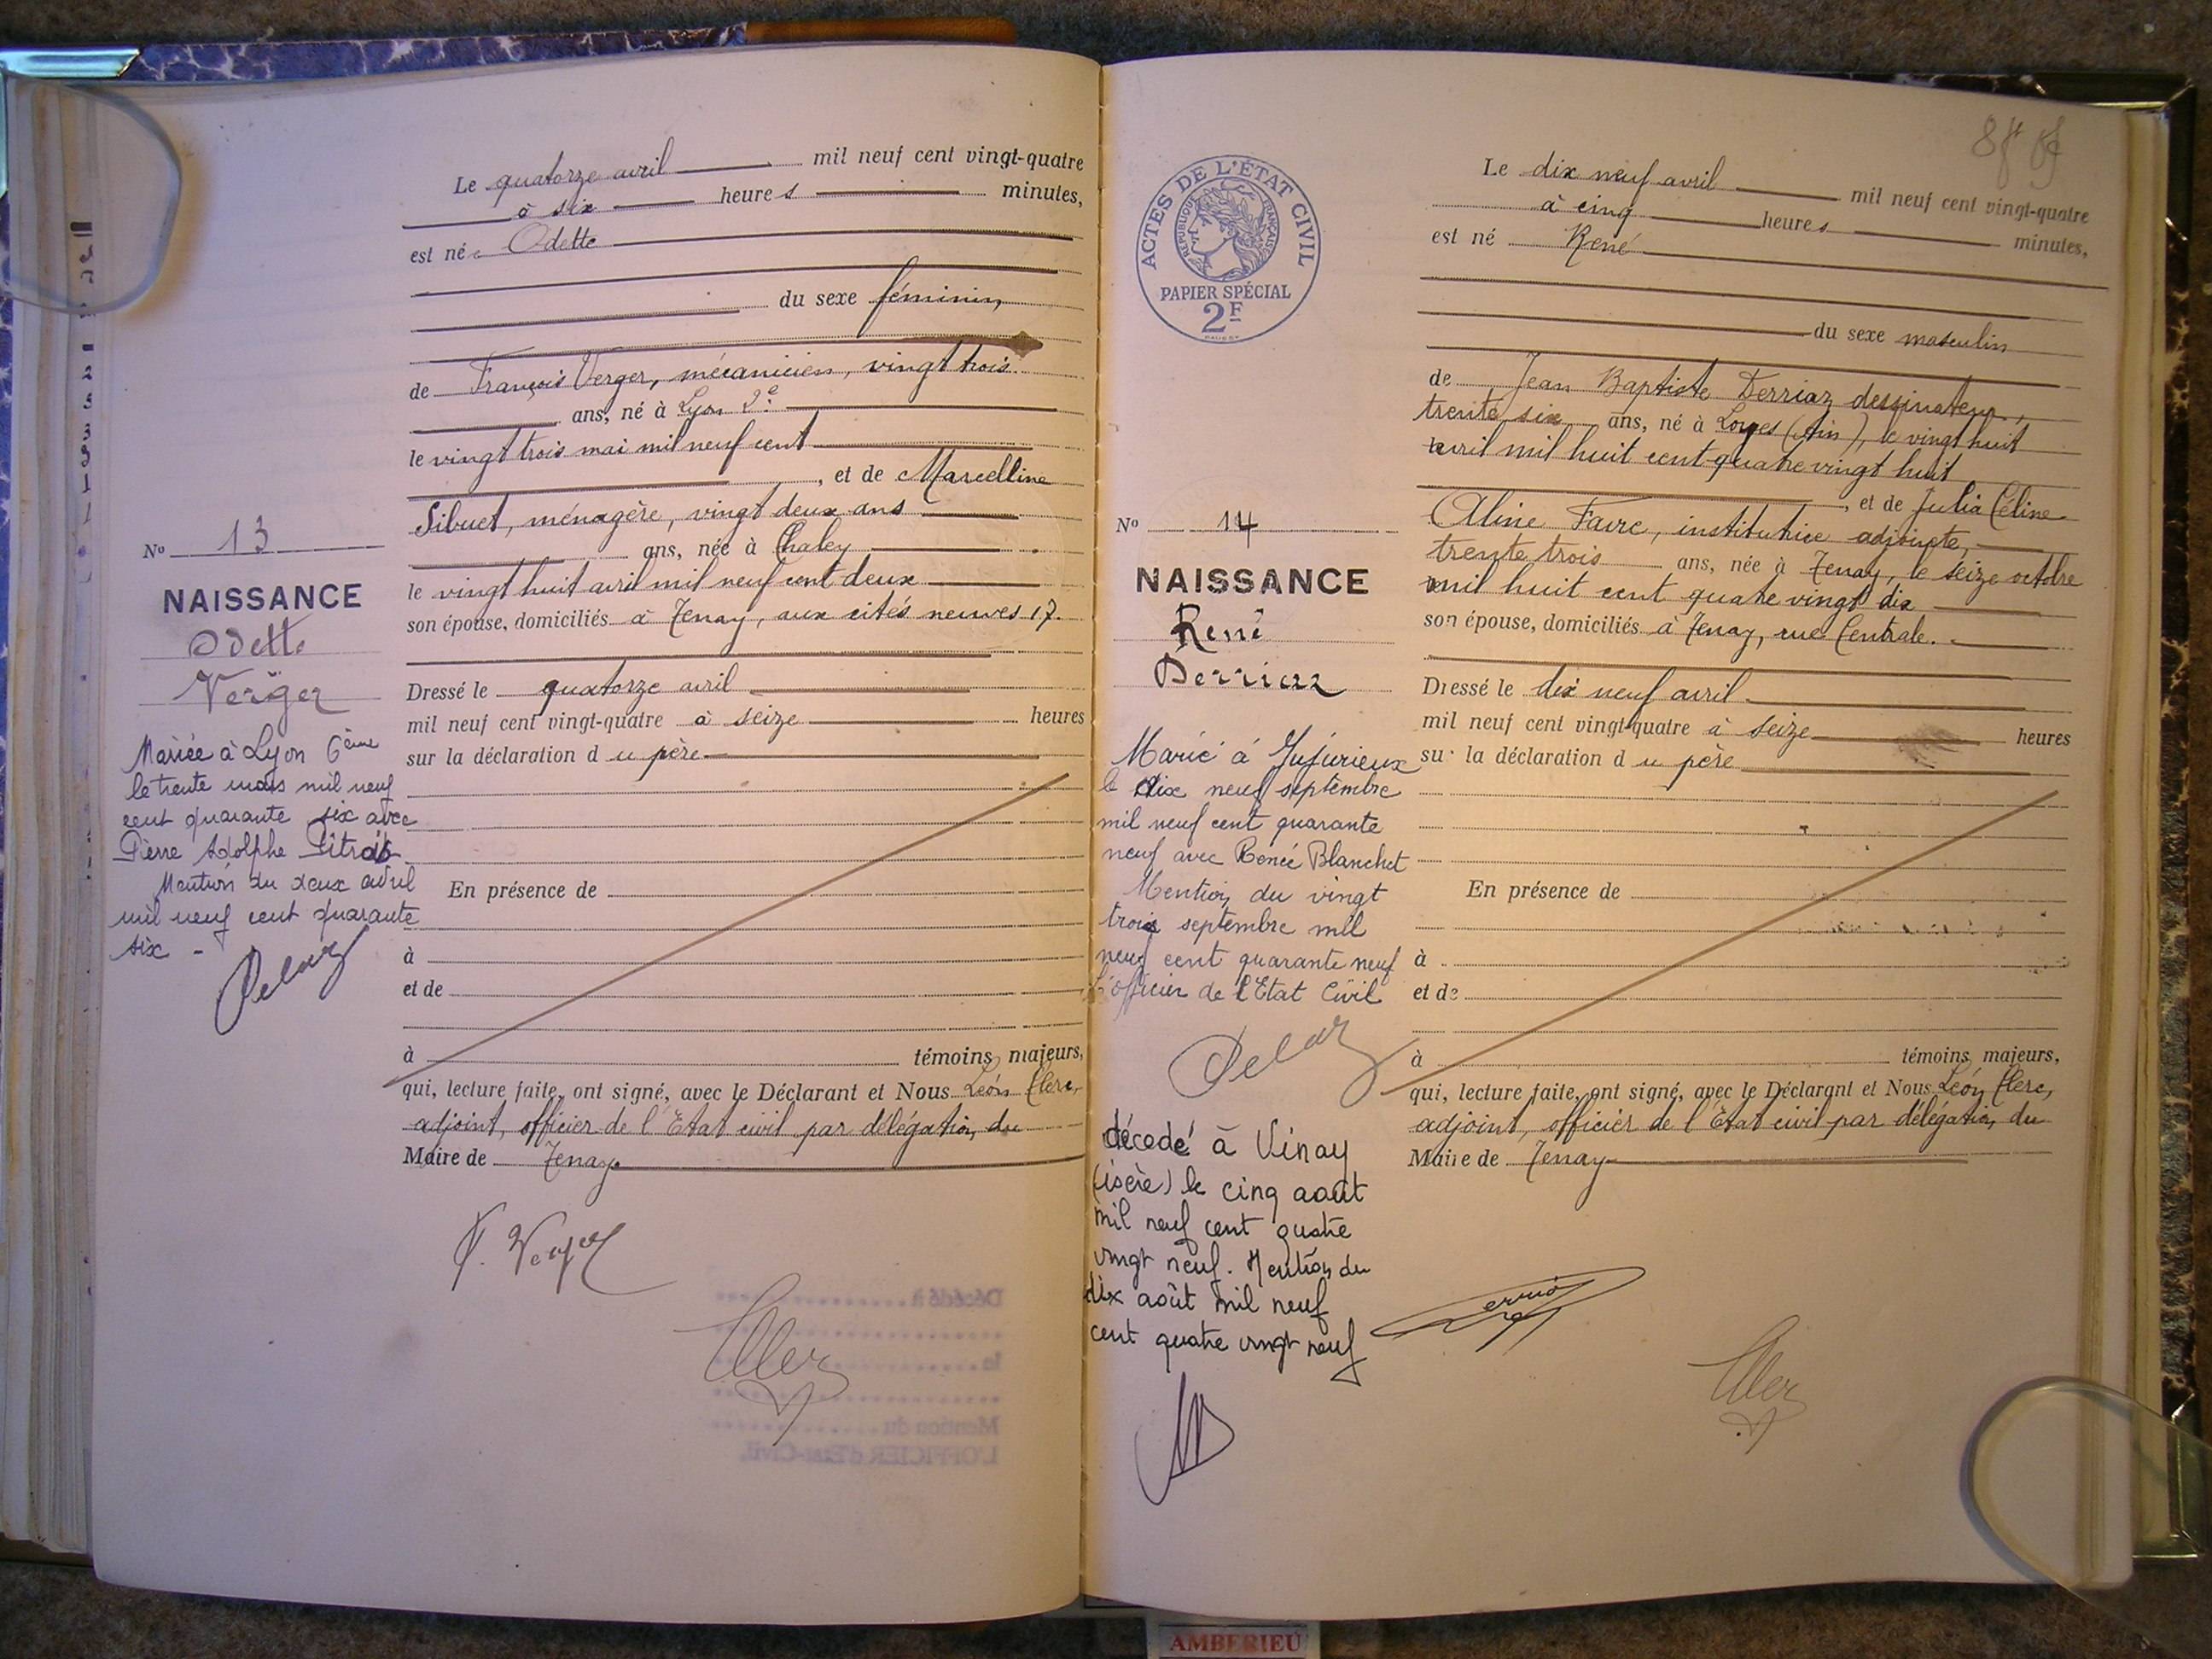 Le quatorze avril mil neuf cent vingt-quatre
à six heures minutes,
est née Odette
du sexe féminin
de François Verger, mécanicien, vingt trois
ans, né à Lyon 2e
le vingt trois mai mil neuf cent
, et de Marcelline
Sibuet, ménagère, vingt deux ans
ans, née à Chaley
le vingt huit avril mil neuf cent deux
son épouse, domiciliés à Tenay, aux cités neuves 17.
Dressé le quatorze avril
mil neuf cent vingt-quatre à seize heures
sur la déclaration du père
En présence de
à
et de
à témoins majeurs,
qui, lecture faite, ont signé, avec le Déclarant et Nous Léon Clerc,
adjoint, officier de l'Etat civil par délégation du
Maire de Tenay.
F. Verger
Clerc
No 13
NAISSANCE
Odette
Verger
Mariée à Lyon 6ème
le trente mars mil neuf
cent quarante six avec
Pierre Adolphe
Mention du deux avril
mil neuf cent quarante
six -
Décédé à
le
Mention du
L'OFFICIER d'Etat-Civil,
ACTES DE L'ÉTAT CIVIL
RÉPUBLIQUE FRANÇAISE
PAPIER SPÉCIAL
2F
Le dix neuf avril mil neuf cent vingt-quatre
à cinq heures minutes,
est né René
du sexe masculin
de Jean Baptiste Derriaz dessinateur,
trente six ans, né à (Ain), le vingt huit
avril mil huit cent quatre vingt huit
, et de Julia Céline
Aline Favre, institutrice adjointe,
trente trois ans, née à Tenay, le seize octobre
mil huit cent quatre vingt dix
son épouse, domiciliés à Tenay, rue Centrale.
Dressé le dix neuf avril
mil neuf cent vingt-quatre à seize heures
sur la déclaration du père
En présence de
à
et de
à témoins majeurs,
qui, lecture faite, ont signé, avec le Déclarant et Nous Léon Clerc,
adjoint, officier de l'Etat civil par délégation du
Maire de Tenay
Clerc
No 14
NAISSANCE
René
Derriaz
Marié à Jujurieux
le dix neuf septembre
mil neuf cent quarante
neuf avec Renée Blanchet
Mention du vingt
trois septembre mil
neuf cent quarante neuf
L'officier de l'Etat Civil
décédé à Vinay
(isère) le cinq août
mil neuf cent quatre
vingt neuf. Mention du
dix août mil neuf
cent quatre vingt neuf
AMBERIEU